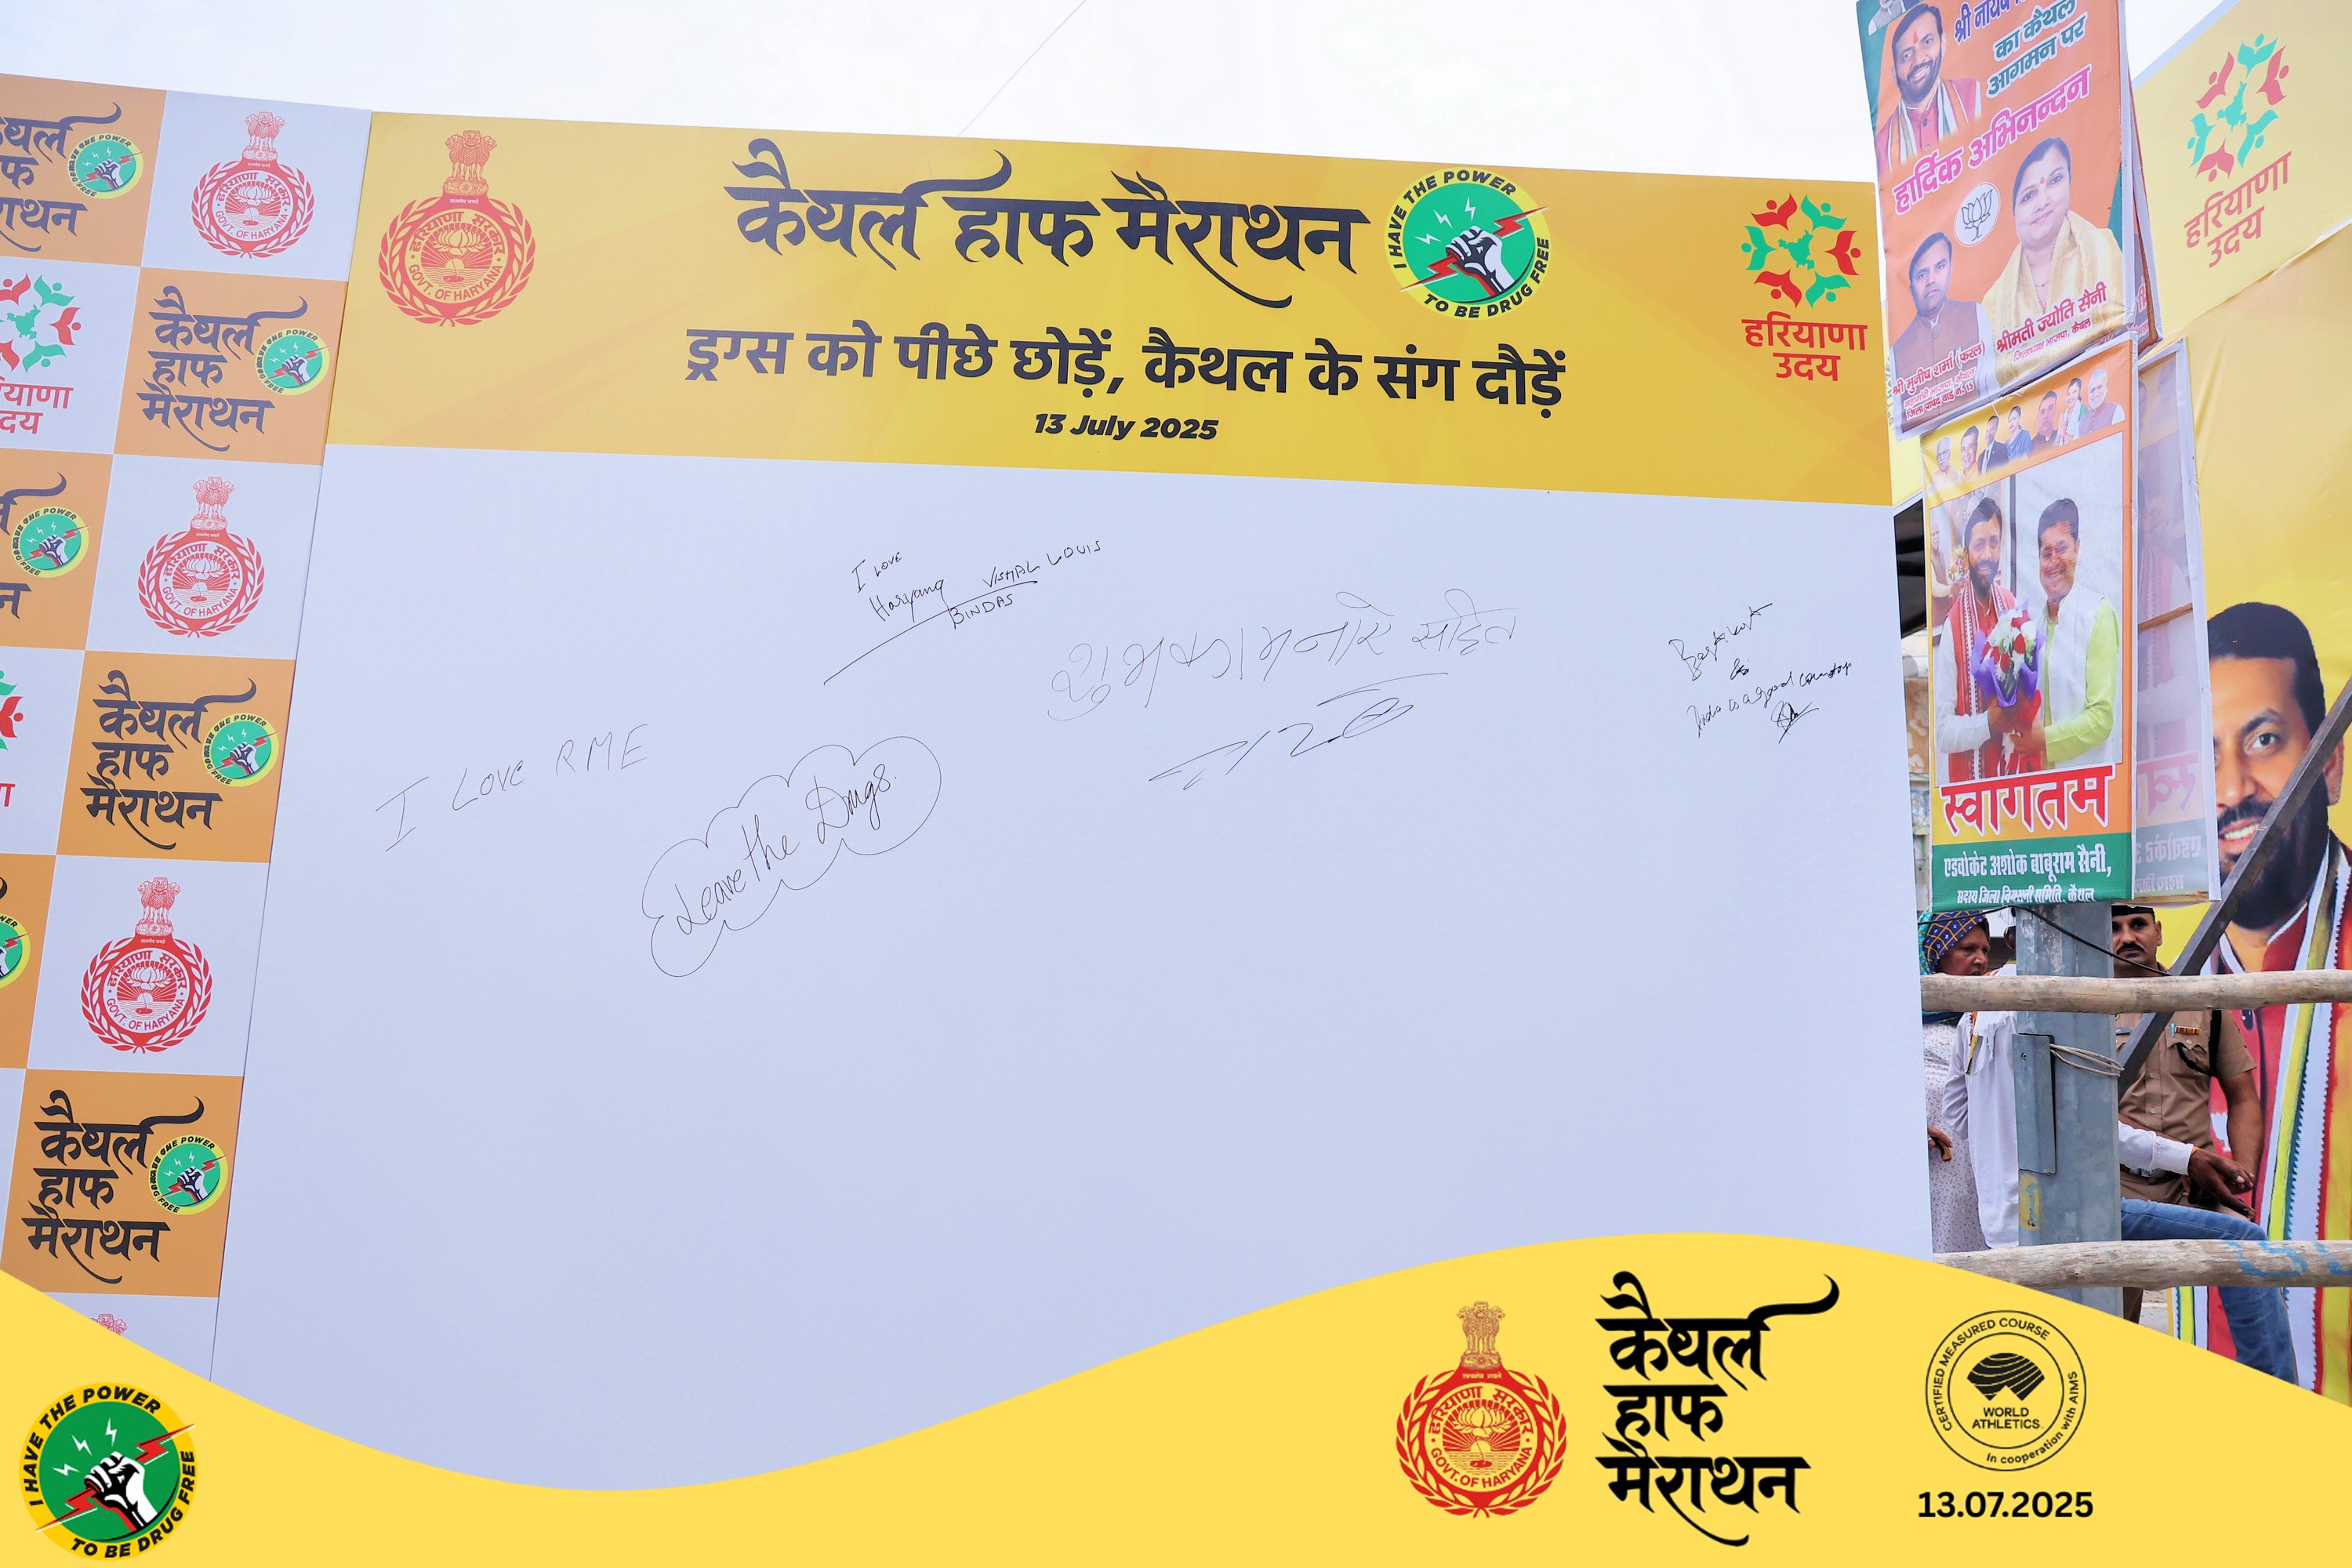 कैथल हाफ मैराथन
I HAVE THE POWER
TO BE DRUG FREE
हरियाणा सरकार
GOVT. OF HARYANA
हरियाणा
उदय
ड्रग्स को पीछे छोड़ें, कैथल के संग दौड़ें
13 July 2025
I LOVE
Haryana
VISHAL LOUIS
BINDAS
शुभकामनाऐ सहित
I Love RME
Leave the Drugs.
India is a good country
कैथल
हाफ
मैराथन
हरियाणा सरकार
GOVT. OF HARYANA
का कैथल
आगमन पर
हार्दिक अभिनन्दन
श्रीमती ज्योति सैनी
जिलाध्यक्ष भाजपा, कैथल
श्री मुनीष शर्मा (फरल)
स्वागतम
एडवोकेट अशोक बाबूराम सैनी,
हरियाणा
उदय
I HAVE THE POWER
TO BE DRUG FREE
हरियाणा सरकार
GOVT. OF HARYANA
कैथल
हाफ
मैराथन
CERTIFIED MEASURED COURSE
WORLD
ATHLETICS
In cooperation with AIMS
13.07.2025